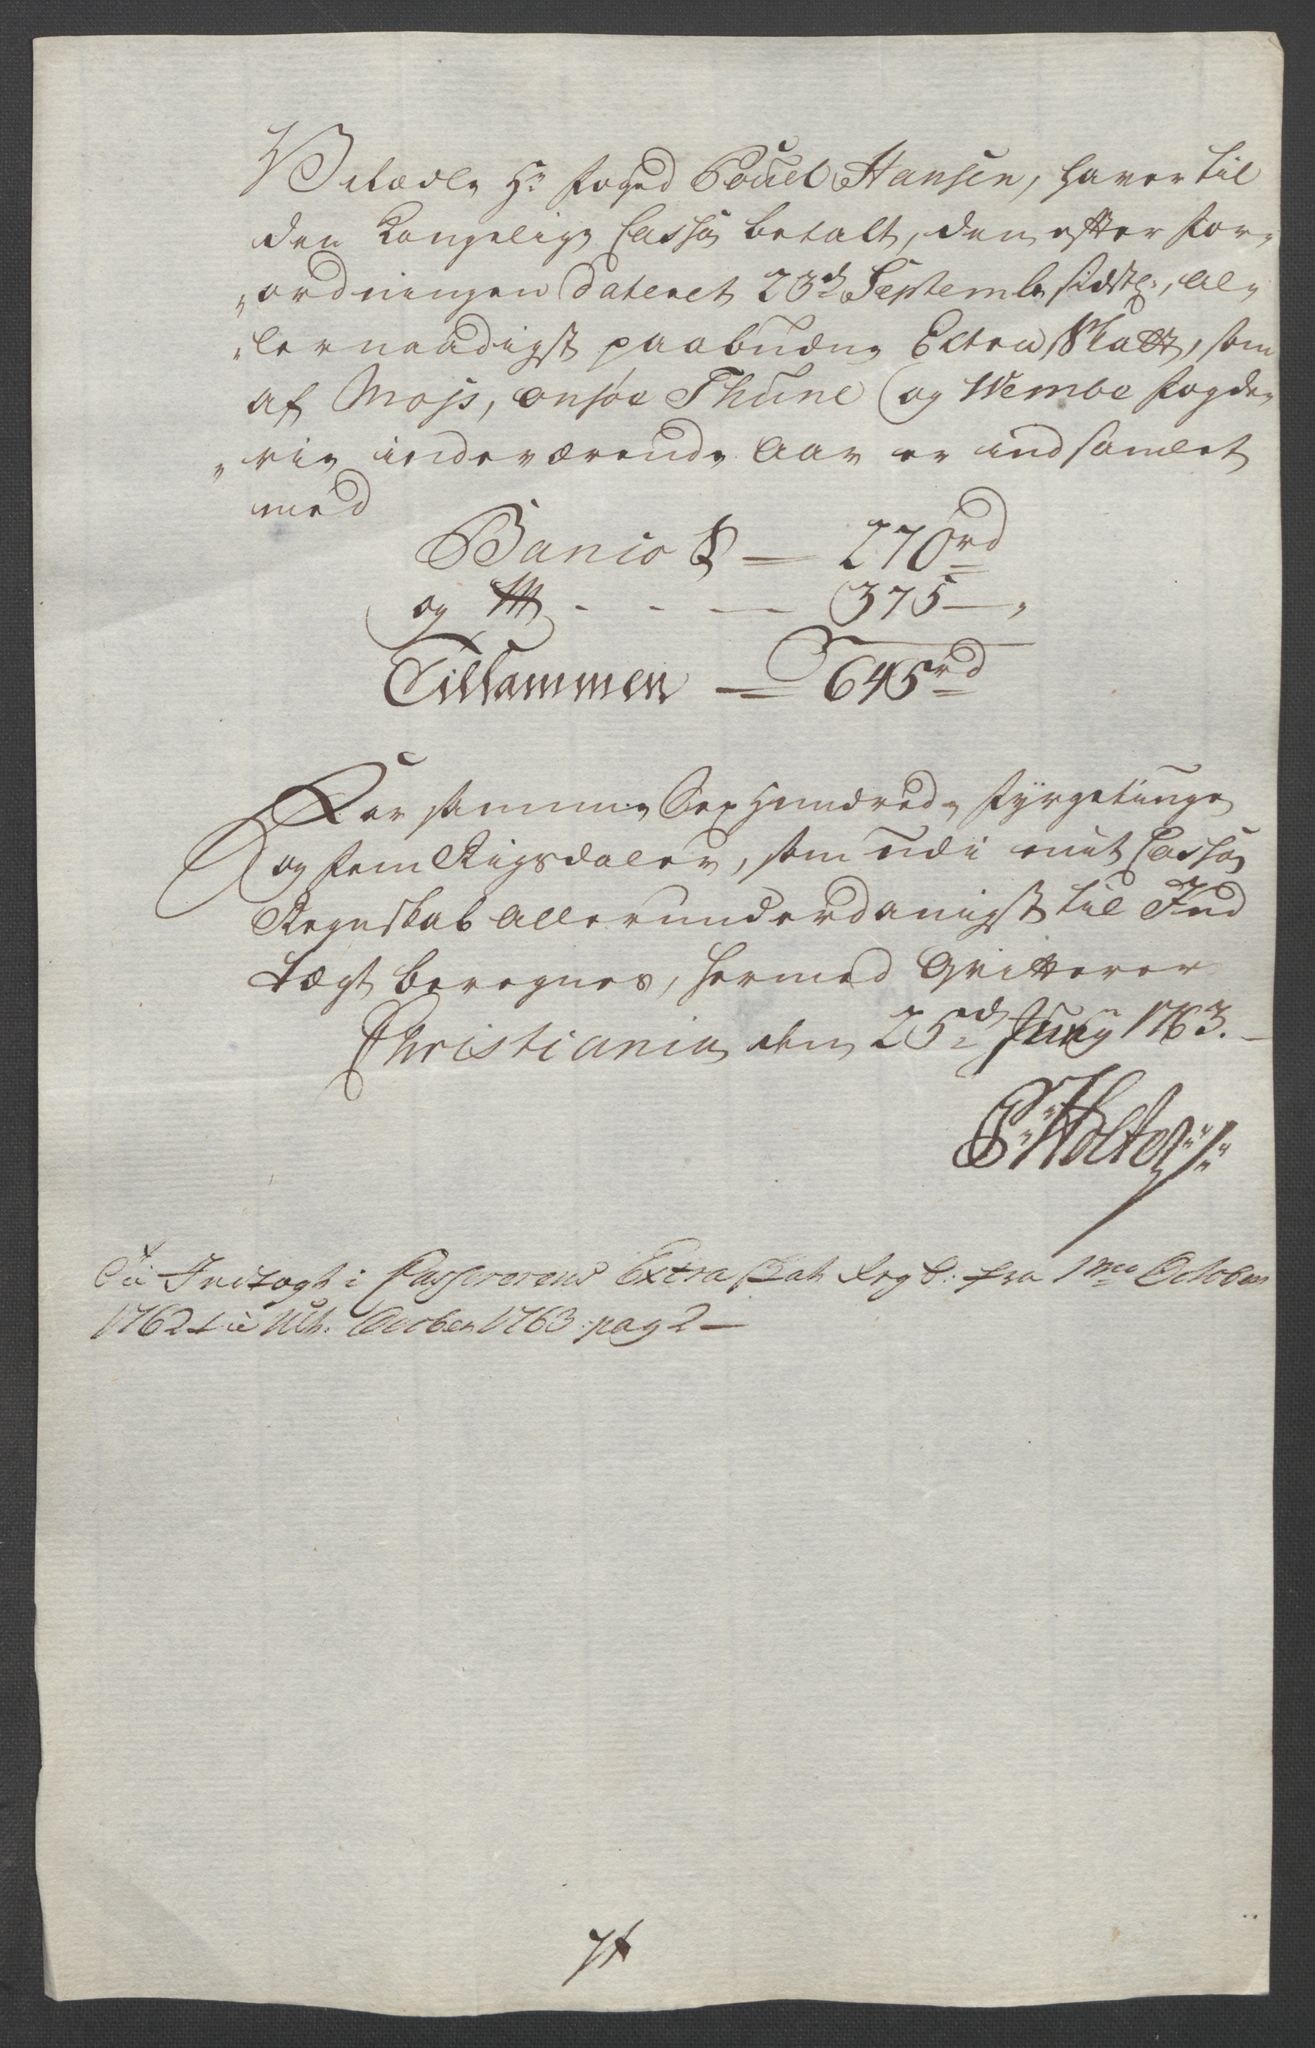 Velædle Hr Foged Pouel Hansen, haver til
den Kongelige Cassa betalt, den efter For-
„ordningen dateret 23d Septembr sidstl:, al-
„lernaadigst paabudne Extra Skatt, som
af Moss, Onsøe Thune og Wembe Fogde-
„rie indeværende Aar er indsamlet
med
Banco 270rd
og 375 —
Tilsammen — 645rd
For samme Sex Hundrede Fyrgetiuge
og fem Rigsdaler, som udi mit Cassa
Regnskab allerunderdanigst til Ind
tægt beregnes, hermed Qvitterer
Christiania den 25d Juny 1763.
P: Holter
Til Indtægt i Casserens Extra Skat Regsb: fra 1me October
1762 til Ult: October 1763 pag 2 —